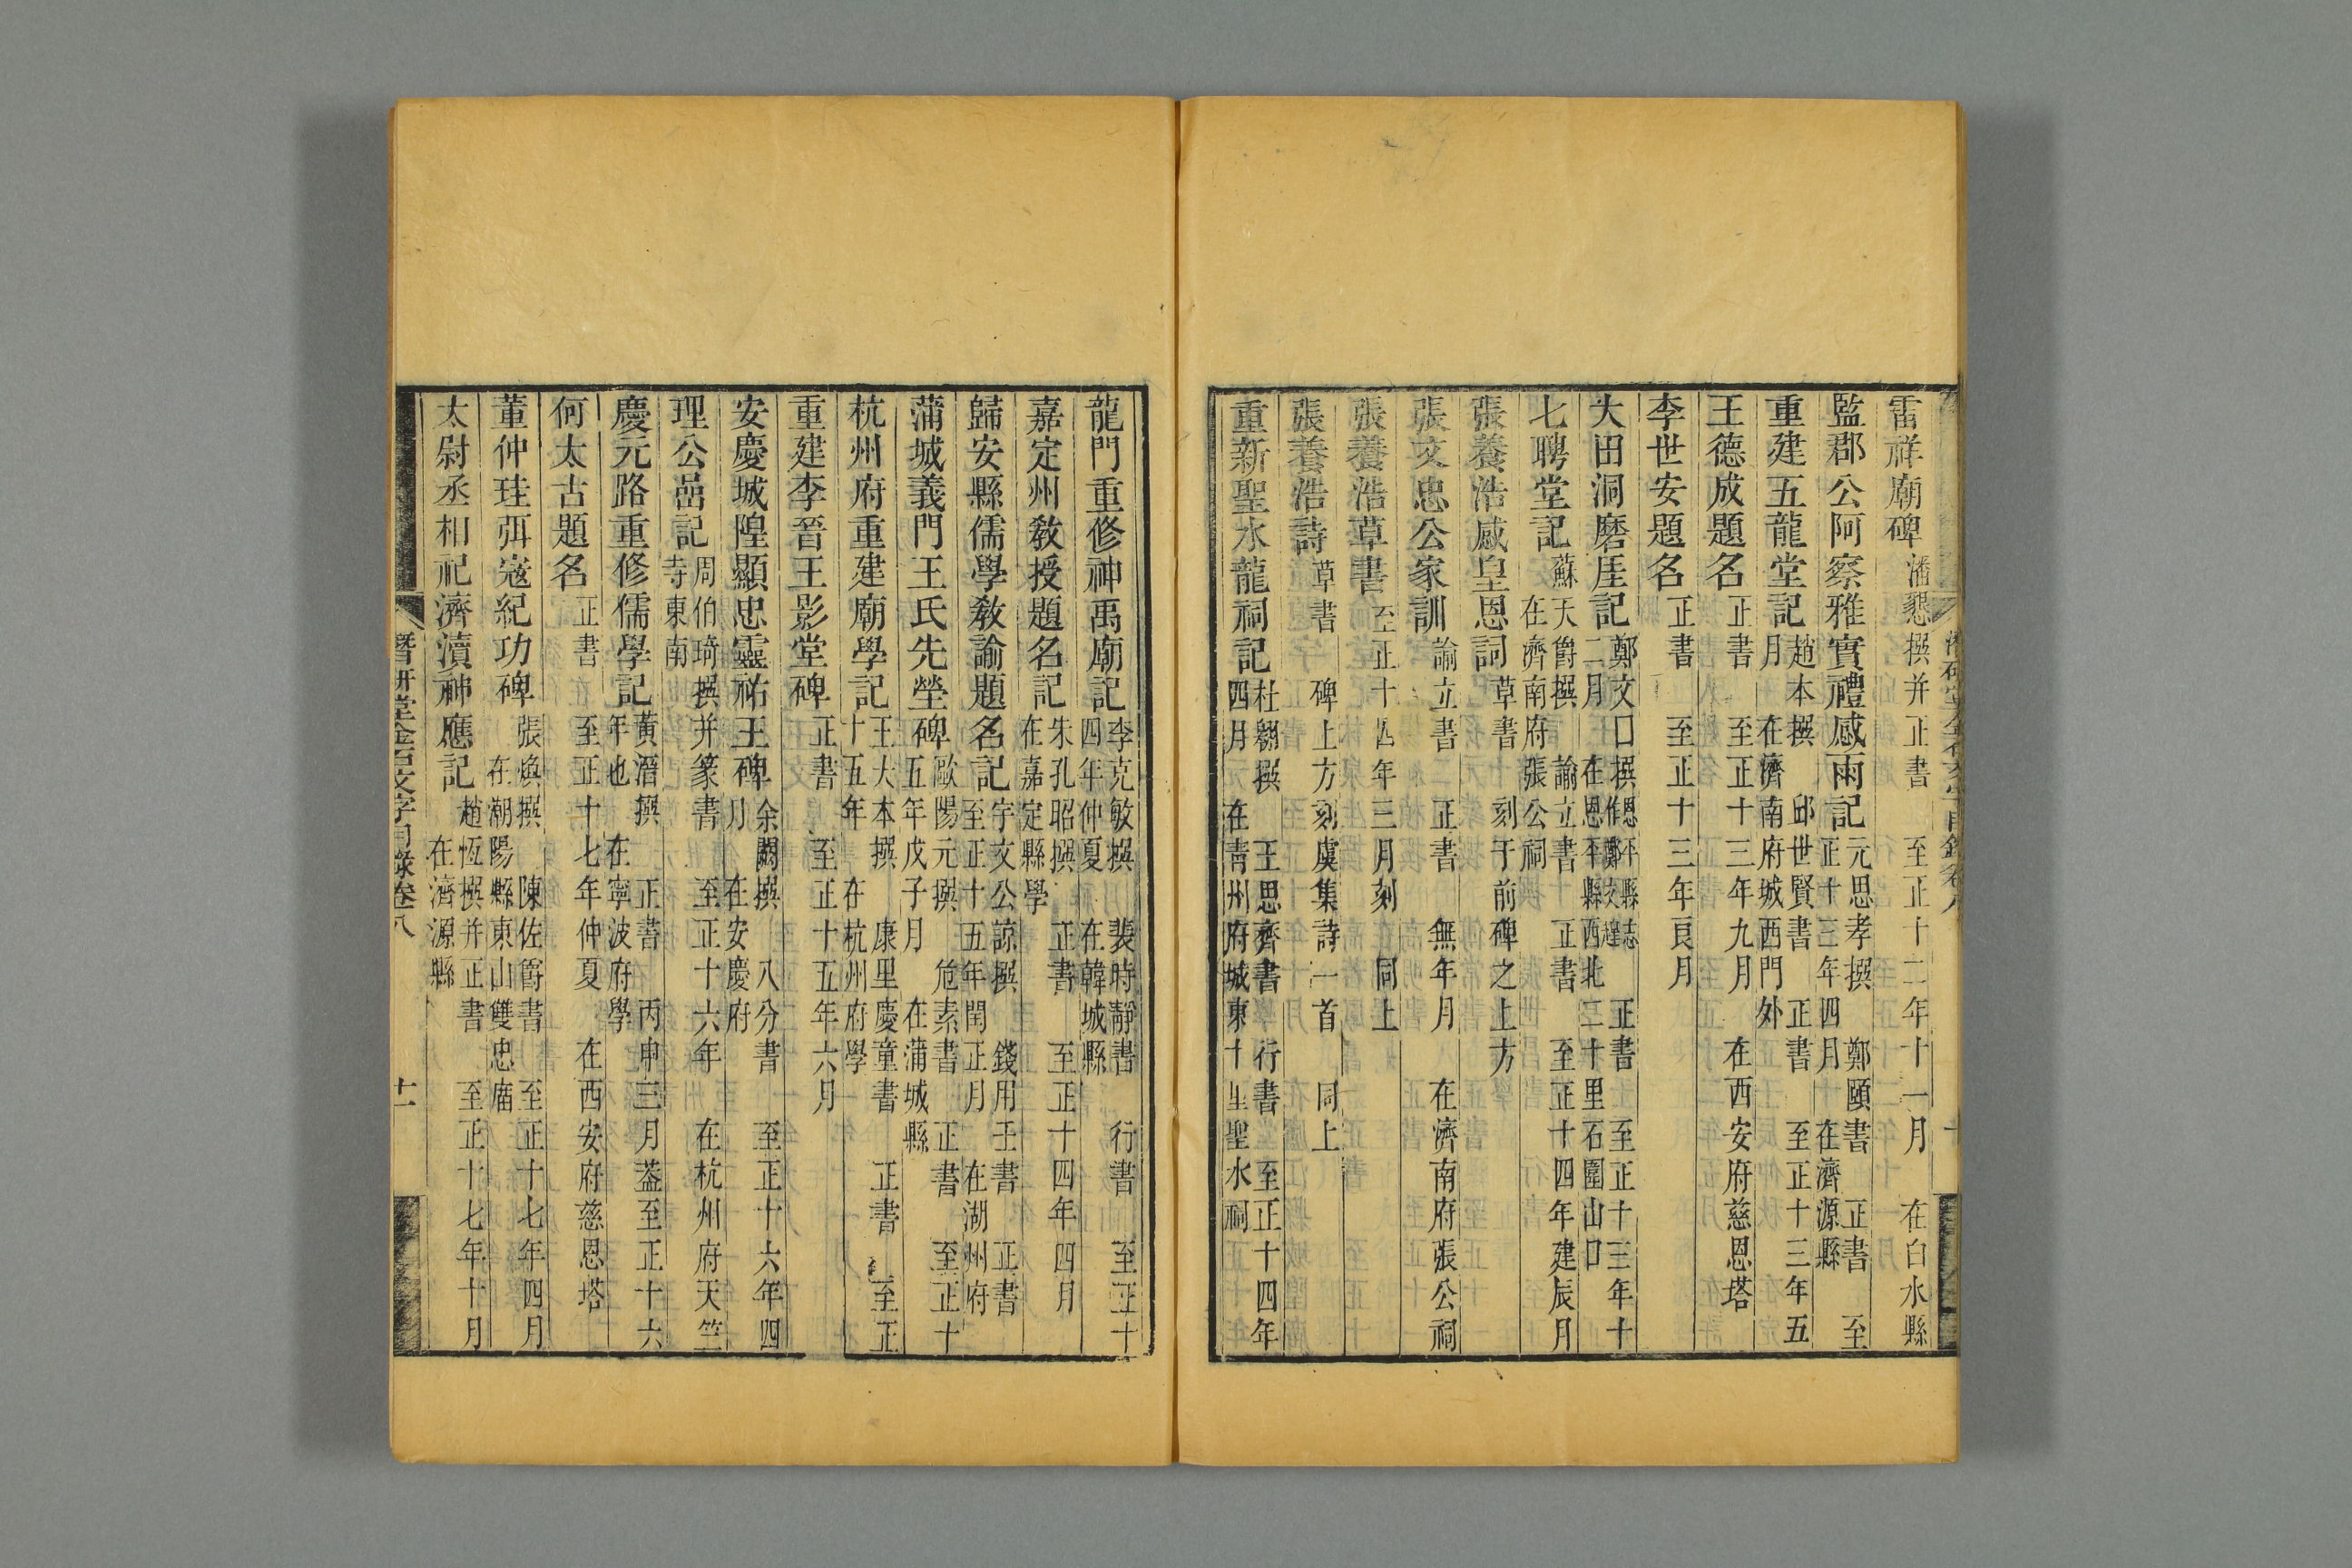 雷祥廟碑 潘懇撰并正書 至正十二年十一月 在白水縣
監郡公阿察雅實禮感雨記 元思孝撰 鄭頤書 正書 至
正十三年四月 在濟源縣
重建五龍堂記 趙本撰 邱世賢書 正書 至正十三年五
月 在濟南府城西門外
王德成題名 正書 至正十三年九月 在西安府慈恩塔
李世安題名 正書 至正十三年良月
大田洞磨厓記 鄭文口撰 恩平縣志作鄭文遑 正書 至正十三年十
二月 在恩平縣西北二十里石圍山口
七聘堂記 蘇天爵撰 諭立書 正書 至正十四年建辰月
在濟南府張公祠
張養浩感皇恩詞 草書 刻于前碑之上方
張文忠公家訓 諭立書 正書 無年月 在濟南府張公祠
張養浩草書 至正十四年三月刻 同上
張養浩詩 草書 碑上方刻虞集詩一首 同上
重新聖水龍祠記 杜翱撰 王思齊書 行書 至正十四年
四月 在青州府城東十里聖水祠
龍門重修神禹廟記 李克敏撰 裴時靜書 行書 至正十
四年仲夏 在韓城縣
嘉定州教授題名記 朱孔昭撰 正書 至正十四年四月
在嘉定縣學
歸安縣儒學教諭題名記 宇文公諒撰 錢用壬書 正書
至正十五年閏正月 在湖州府
蒲城義門王氏先塋碑 歐陽元撰 危素書 正書 至正十
五年戊子月 在蒲城縣
杭州府重建廟學記 王大本撰 康里慶童書 正書 至正
十五年 在杭州府學
重建李晉王影堂碑 正書 至正十五年六月
安慶城隍顯忠靈祐王碑 余闕撰 八分書 至正十六年四
月 在安慶府
理公喦記 周伯琦撰并篆書 至正十六年 在杭州府天竺
寺東南
慶元路重修儒學記 黃溍撰 正書 丙申三月葢至正十六
年也 在寧波府學
何太古題名 正書 至正十七年仲夏 在西安府慈恩塔
董仲珪弭寇紀功碑 張煥撰 陳佐爵書 至正十七年四月
在潮陽縣東山雙忠廟
太尉丞相祀濟瀆神應記 趙恆撰并正書 至正十七年十月
在濟源縣
潛研堂金石文字目錄卷八 十一